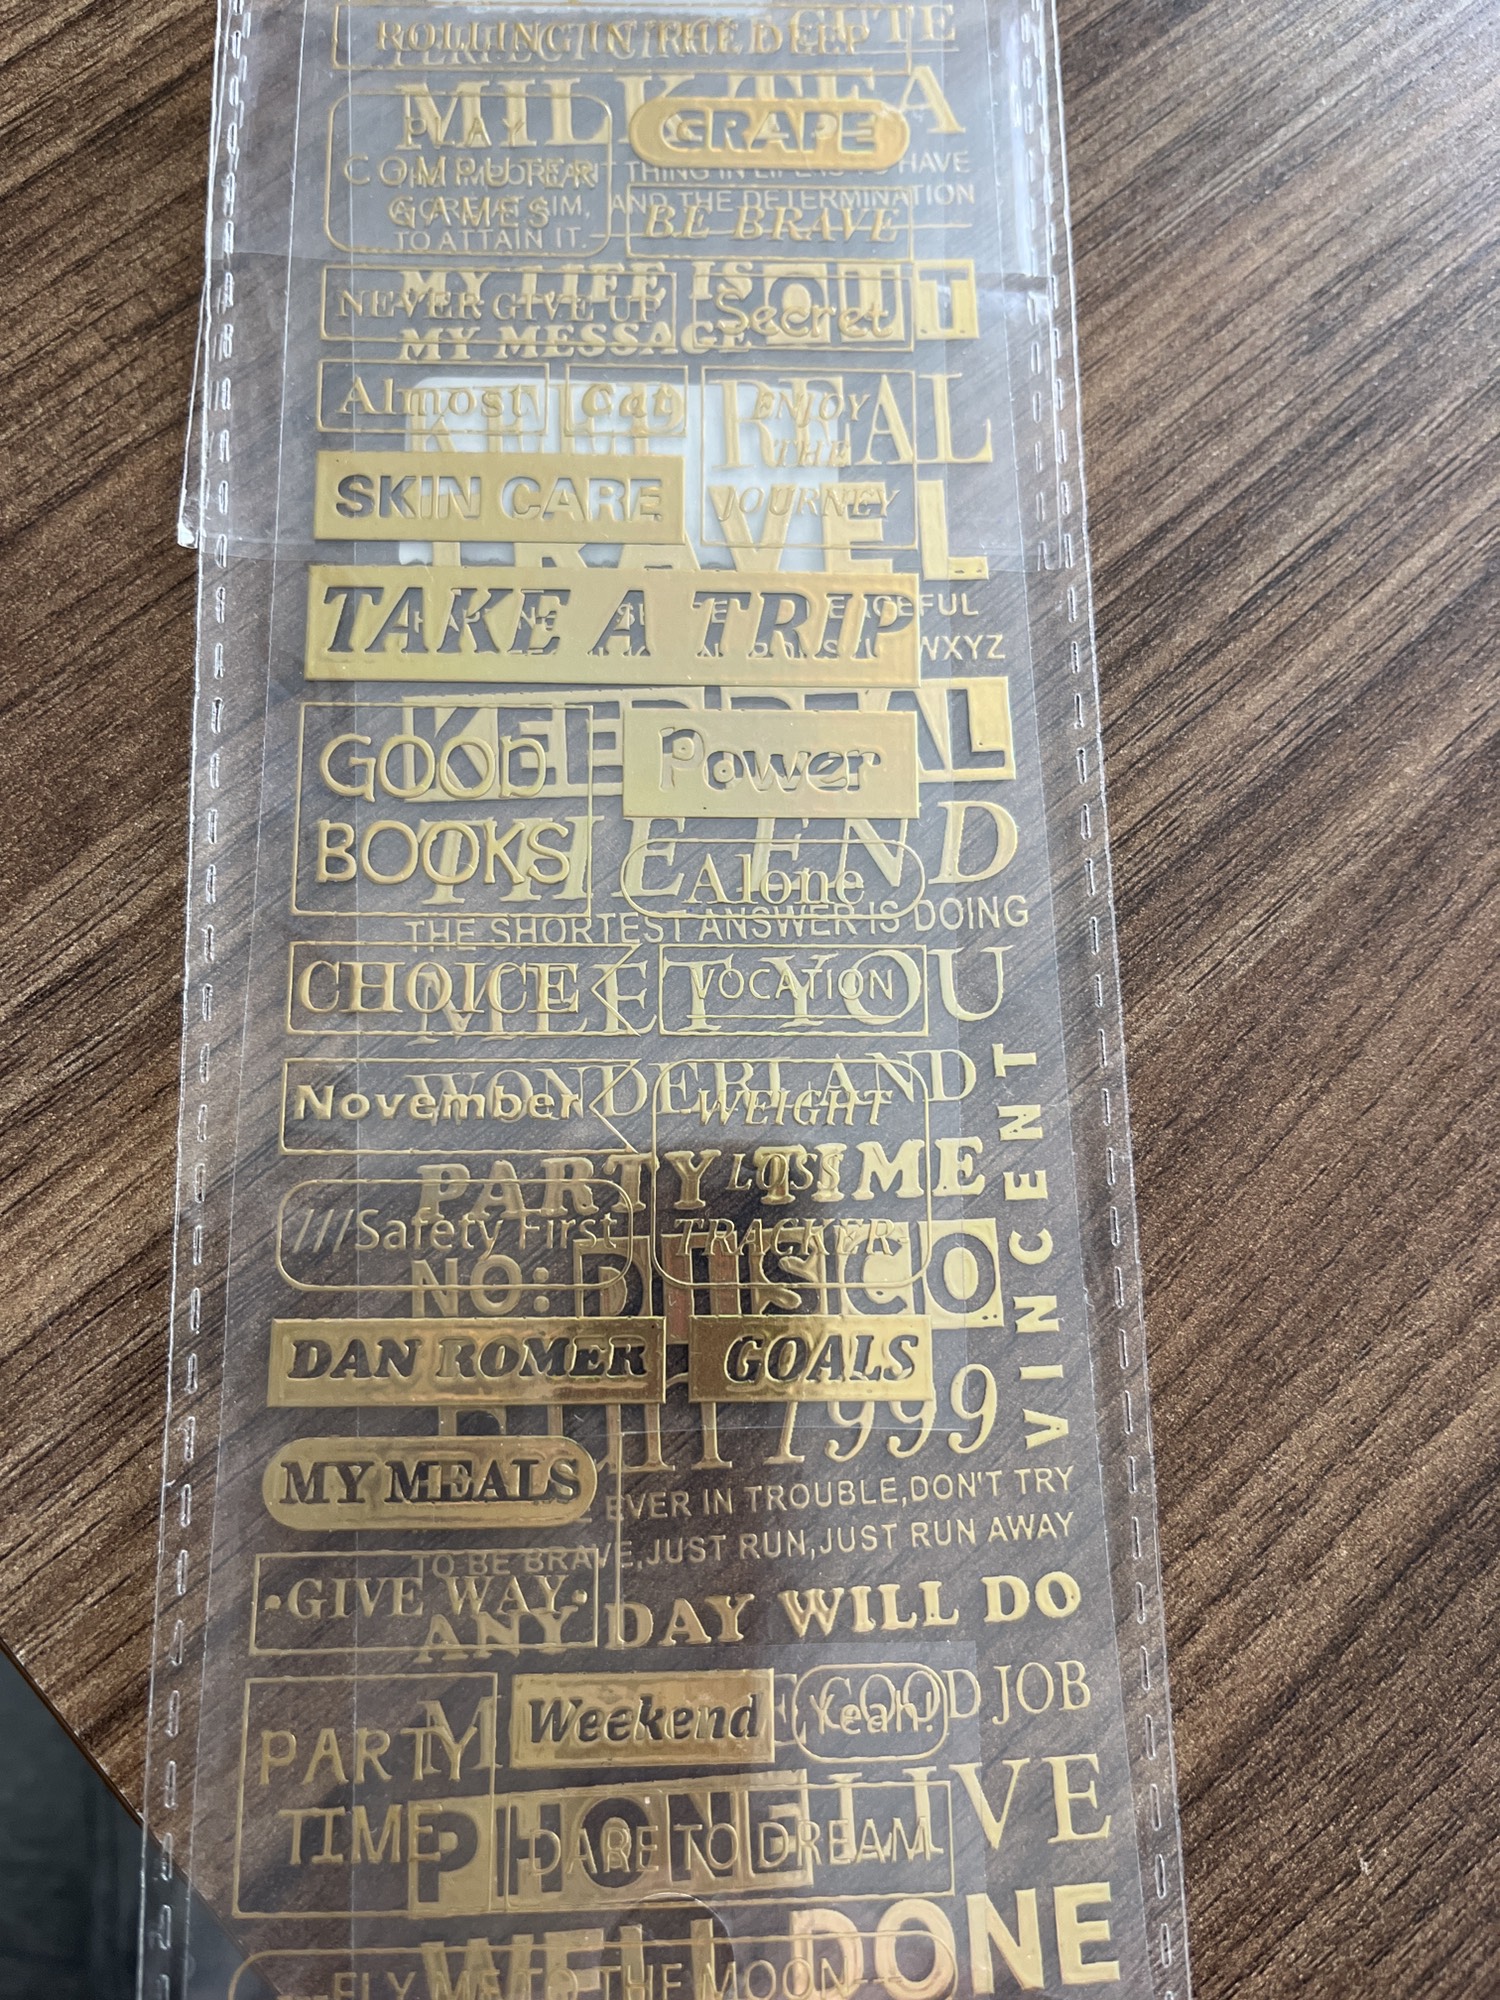 ROLLING IN THE DEEP
CUTE
PERFECT
MILK TEA
PLAY
COMPUTER
GAMES
GRAPE
THING IN LIFE IS TO HAVE
AIM, AND THE DETERMINATION
TO ATTAIN IT.
BE BRAVE
MY LIFE IS
OUT
NEVER GIVE UP
Secret
MY MESSAGE
Almost
Cat
ENJOY
THE
JOURNEY
REAL
SKIN CARE
TRAVEL
TAKE A TRIP
WXYZ
KEEP REAL
GOOD
BOOKS
Power
THE END
Alone
THE SHORTEST ANSWER IS DOING
CHOICE
VOCATION
MEET YOU
WONDERLAND
November
WEIGHT
LOSS
TRACKER
VINCENT
PARTY TIME
///Safety First
NO: DISCO
DAN ROMER
GOALS
1999
MY MEALS
EVER IN TROUBLE,DON'T TRY
TO BE BRAVE,JUST RUN,JUST RUN AWAY
·GIVE WAY·
ANY DAY WILL DO
PARTY
TIME
Weekend
Yeah!
GOOD JOB
LIVE
PHONE
DARE TO DREAM
WELL DONE
FLY ME TO THE MOON